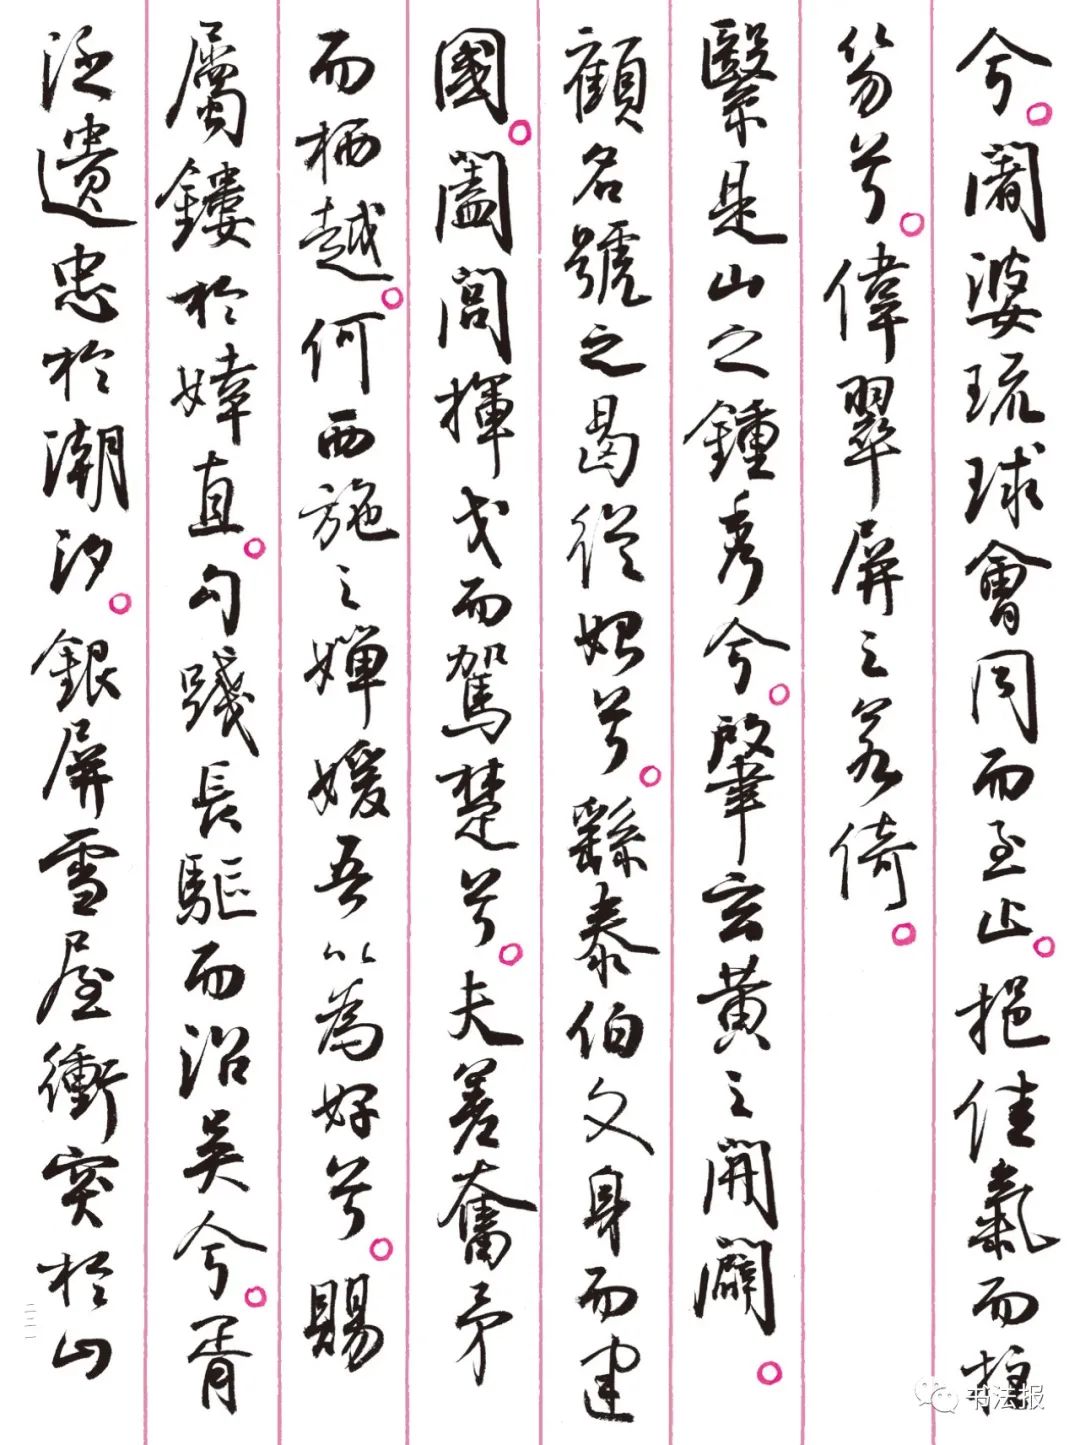 兮。闍婆琉球會同而至止。挹佳氣而拄
笏兮。偉翠屏之若倚。
繄是山之鍾秀兮。肇玄黃之開闢。
顧名號之曷從始兮。繇泰伯文身而建
國。闔閭揮戈而駕楚兮。夫差奮矛
而栖越。何西施之嬋媛吾以為好兮。賜
屬鏤於婞直。勾踐長驅而沼吳兮。胥
泛遺忠於潮汐。銀屏雪屋衝突於山
书法报